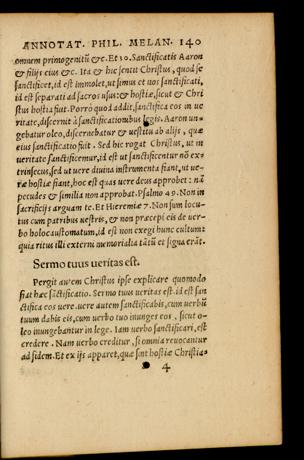 ANNOTAT. PHIL. MELAN. 140
omnem primogenitũ &c. Et 30. Sanctificatis Aaron
& filijs eius &c. Ita & hic sentit Christus, quod se
sanctificet, id est immolet, ut simus et nos sanctificati,
id est separati ad sacros usus: & hostiæ, sicut & Chri
stus hostia fuit. Porrò quod addit, sanctifica eos in ue
ritate, discernit à sanctificationibus legis. Aaron un-
gebatur oleo, discernebatur & uestitu ab alijs, quæ
eius sanctificatio fuit. Sed hic rogat Christus, ut in
ueritate sanctificemur, id est ut sanctificentur nõ ex-
trinsecus, sed ut uere diuina instrumenta fiant, ut ue-
ræ hostiæ fiant, hoc est quas uere deus approbet: nã
pecudes & similia non approbat. Psalmo 49. Non in
sacrificijs arguam te. Et Hieremiæ 7. Non sum locu-
tus cum patribus uestris, & non præcepi eis de uer-
bo holocaustomatum, id est non exegi hunc cultum:
quia ritus illi externi memorialia tãtũ et signa erãt.
Sermo tuus ueritas est.
Pergit autem Christus ipse explicare quomodo
fiat hæc sãctificatio. Sermo tuus ueritas est. id est san
ctifica eos uere. uere autem sanctificabis, cum uerbũ
tuum dabis eis, cum uerbo tuo inunges eos, sicut o-
leo inungebantur in lege. Iam uerbo sanctificari, est
credere. Nam uerbo creditur, si omnia reuocantur
ad fidem. Et ex ijs apparet, quæ sint hostiæ Christia-
4